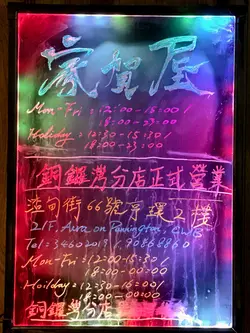 家賀屋
Mon-Fri : 12:00-15:00 /
18:00-23:00
Holiday : 12:30-15:30 /
18:00-23:00
銅鑼灣分店正式營業
渣甸街66號亨環2樓
2/F, Aura on Pennington, CWB
Tel: 34602019 / 90868860
Mon-Fri : 12:00-15:30 /
18:00-00:00
Hoilday : 12:30-15:30 /
18:00-00:00
銅鑼灣分店